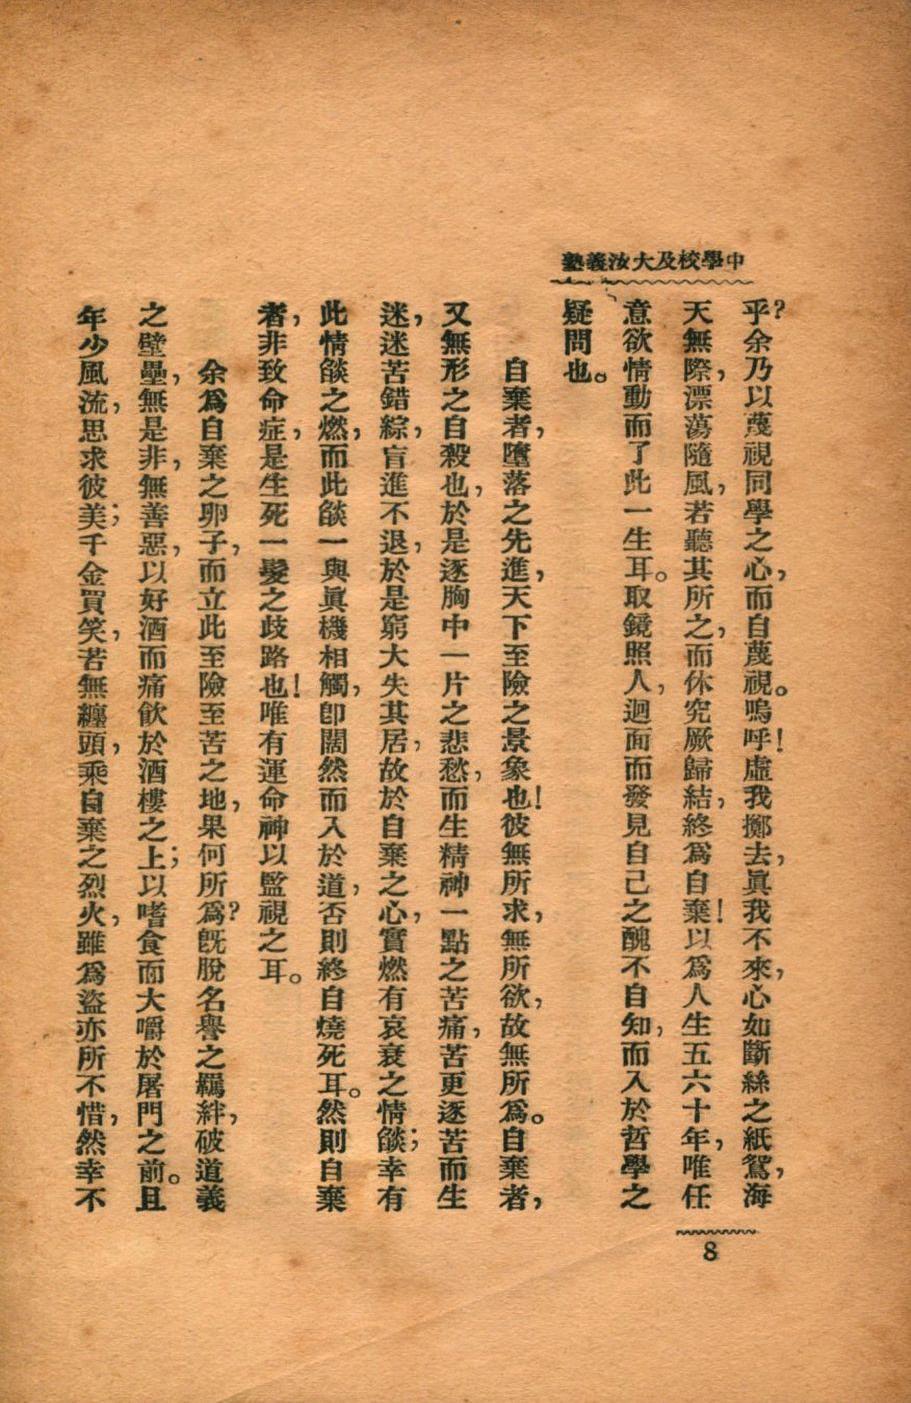 中學校及大汝義塾
乎?余乃以蔑視同學之心,而自蔑視。嗚呼!虛我擲去,眞我不來,心如斷絲之紙鴛,海
天無際,漂蕩隨風,若聽其所之,而休究厥歸結,終爲自棄!以爲人生五六十年,唯任
意欲情動而了此一生耳。取鏡照人,迴面而發見自己之醜不自知,而入於哲學之
疑問也。
自棄者,墮落之先進,天下至險之景象也!彼無所求,無所欲,故無所爲。自棄者,
又無形之自殺也,於是逐胸中一片之悲愁,而生精神一點之苦痛,苦更逐苦而生
迷,迷苦錯綜,盲進不退,於是窮大失其居,故於自棄之心,實燃有哀衰之情燄;幸有
此情燄之燃,而此燄一與眞機相觸,卽闊然而入於道,否則終自燒死耳。然則自棄
者,非致命症,是生死一髮之歧路也!唯有運命神以監視之耳。
余爲自棄之卵子,而立此至險至苦之地,果何所爲?旣脫名譽之羈絆,破道義
之壁壘,無是非,無善惡,以好酒而痛飮於酒樓之上;以嗜食而大嚼於屠門之前。且
年少風流,思求彼美;千金買笑,苦無纏頭,乘自棄之烈火,雖爲盜亦所不惜,然幸不
8